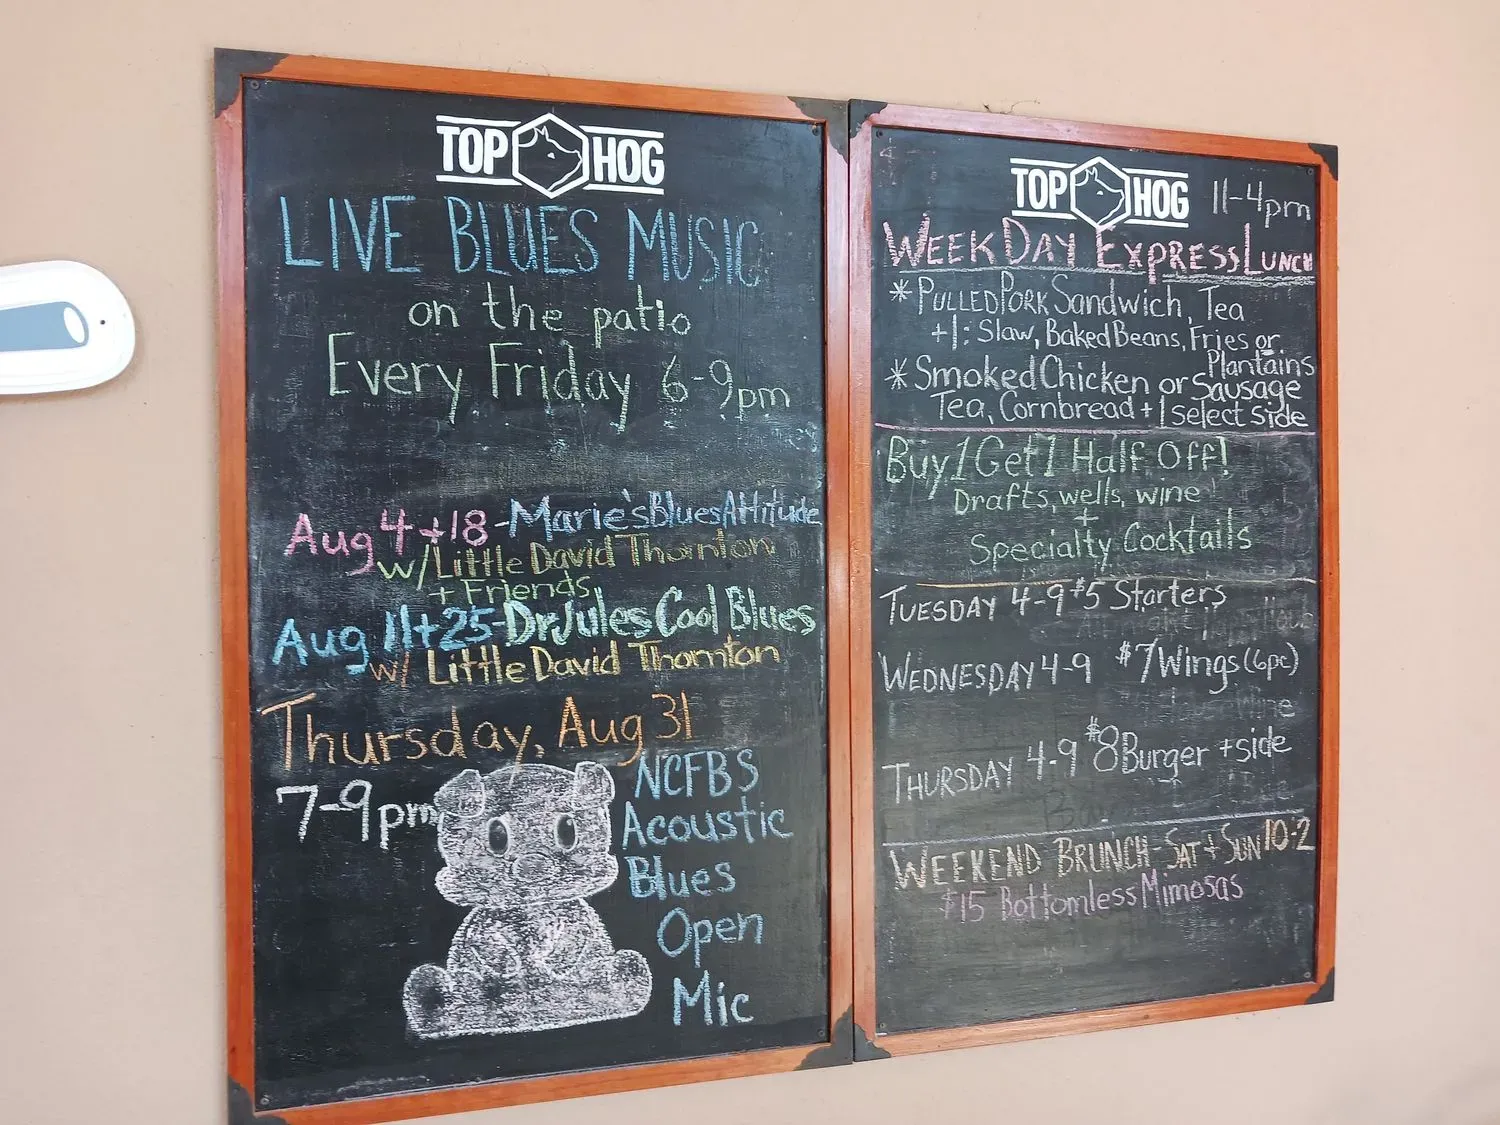 TOP HOG
LIVE BLUES MUSIC
on the patio
Every Friday 6-9pm
Aug 4+18-Marie's Blues Attitude
w/Little David Thornton
+ Friends
Aug 11+25-Dr Jules Cool Blues
w/ Little David Thornton
Thursday, Aug 31
7-9pm
NCFBS
Acoustic
Blues
Open
Mic
TOP HOG
11-4pm
WEEKDAY EXPRESS LUNCH
* PULLED PORK Sandwich, Tea
+1: Slaw, Baked Beans, Fries or
Plantains
* Smoked Chicken or Sausage
Tea, Cornbread + 1 select side
Buy 1 Get 1 Half Off!
Drafts, wells, wine
+
Specialty Cocktails
TUESDAY 4-9 $5 Starters
WEDNESDAY 4-9 $7 Wings (6pc)
THURSDAY 4-9 $8 Burger + side
WEEKEND BRUNCH-SAT + SUN 10-2
$15 Bottomless Mimosas